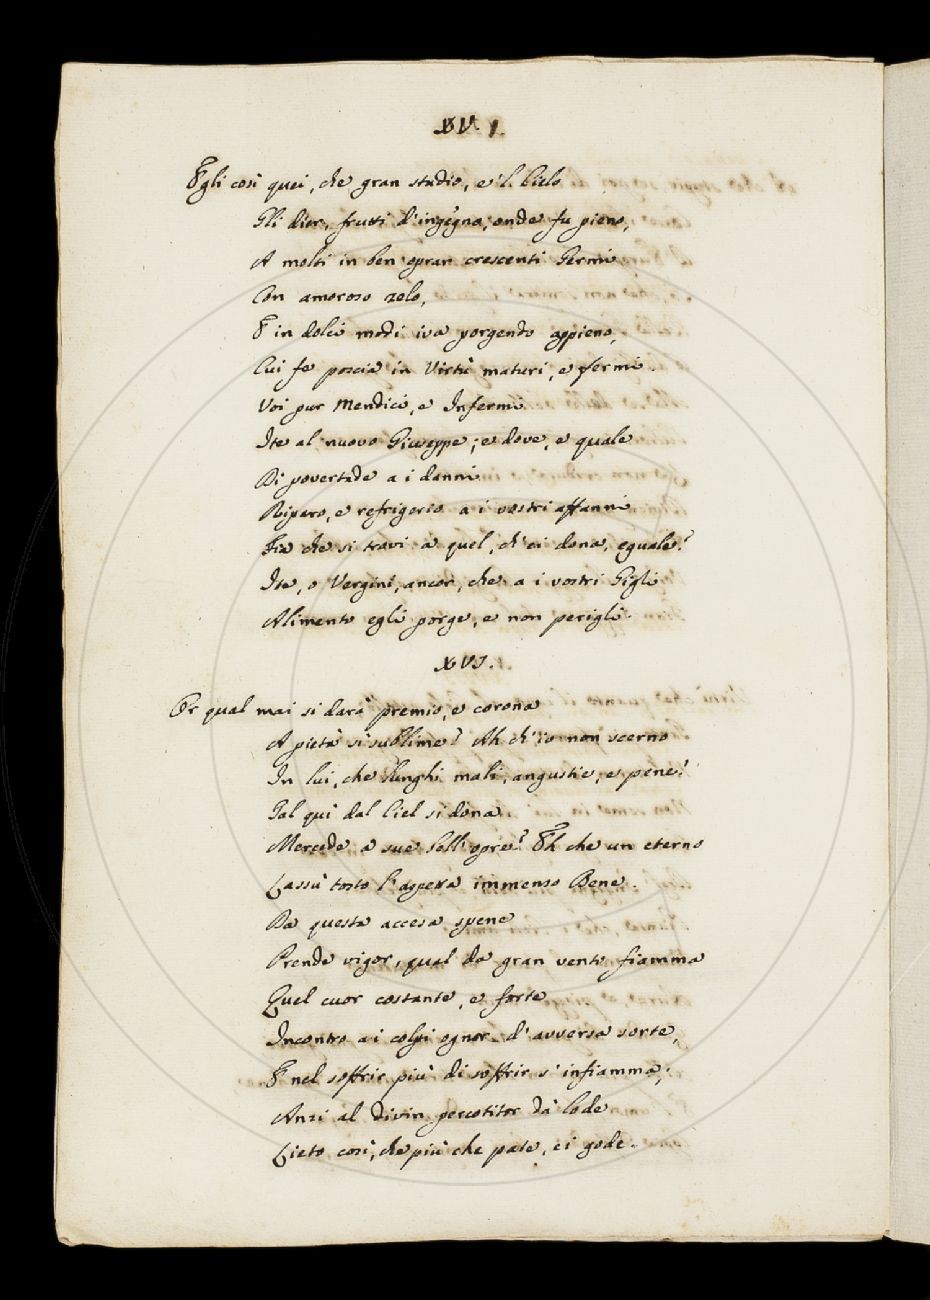 XV.
Egli così quei, che gran studio, e 'l Cielo
Gli dier, frutti d'ingegno, onde fu pieno,
A molti in ben oprar crescenti Germi
Con amoroso zelo,
E in dolci modi iva porgendo appieno,
Cui fe poscia in Virtù maturi, e fermi.
Voi pur Mendici, e Infermi
Ite al nuovo Giuseppe; e dove, e quale
Di povertade a i danni
Riparo, e refrigerio a i vostri affanni
Fia che si trovi a quel, ch'ei dona, eguale?
Ite, o Vergini, ancor, che a i vostri Gigli
Alimento egli porge, e non perigli.
XVI.
Or qual mai si darà premio, e corona
A pietà sì sublime? Ah ch'io non scerno
In lui, che lunghi mali, angustie, e pene!
Tal quì dal Ciel si dona
Mercede a sue bell'opre? Eh che un eterno
Lassù tosto l'aspetta immenso Bene.
Da questa accesa spene
Prende vigor, qual da gran vento fiamma
Quel cuor costante, e forte
Incontro a i colpi ognor d'avversa sorte,
E nel soffrir più di soffrir s'infiamma;
Anzi al divin percotitor dà lode
Lieto così, che più che pate, ei gode.